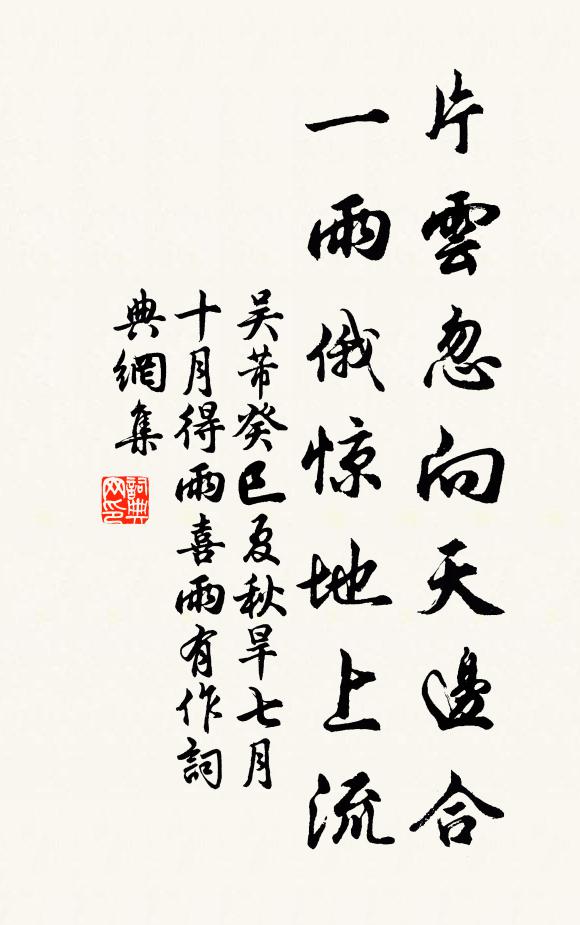 片雲忽向天邊合
一雨俄惊地上流
吴芾癸巳夏秋旱七月
十月得雨喜雨有作詞
典網集
詞典网印